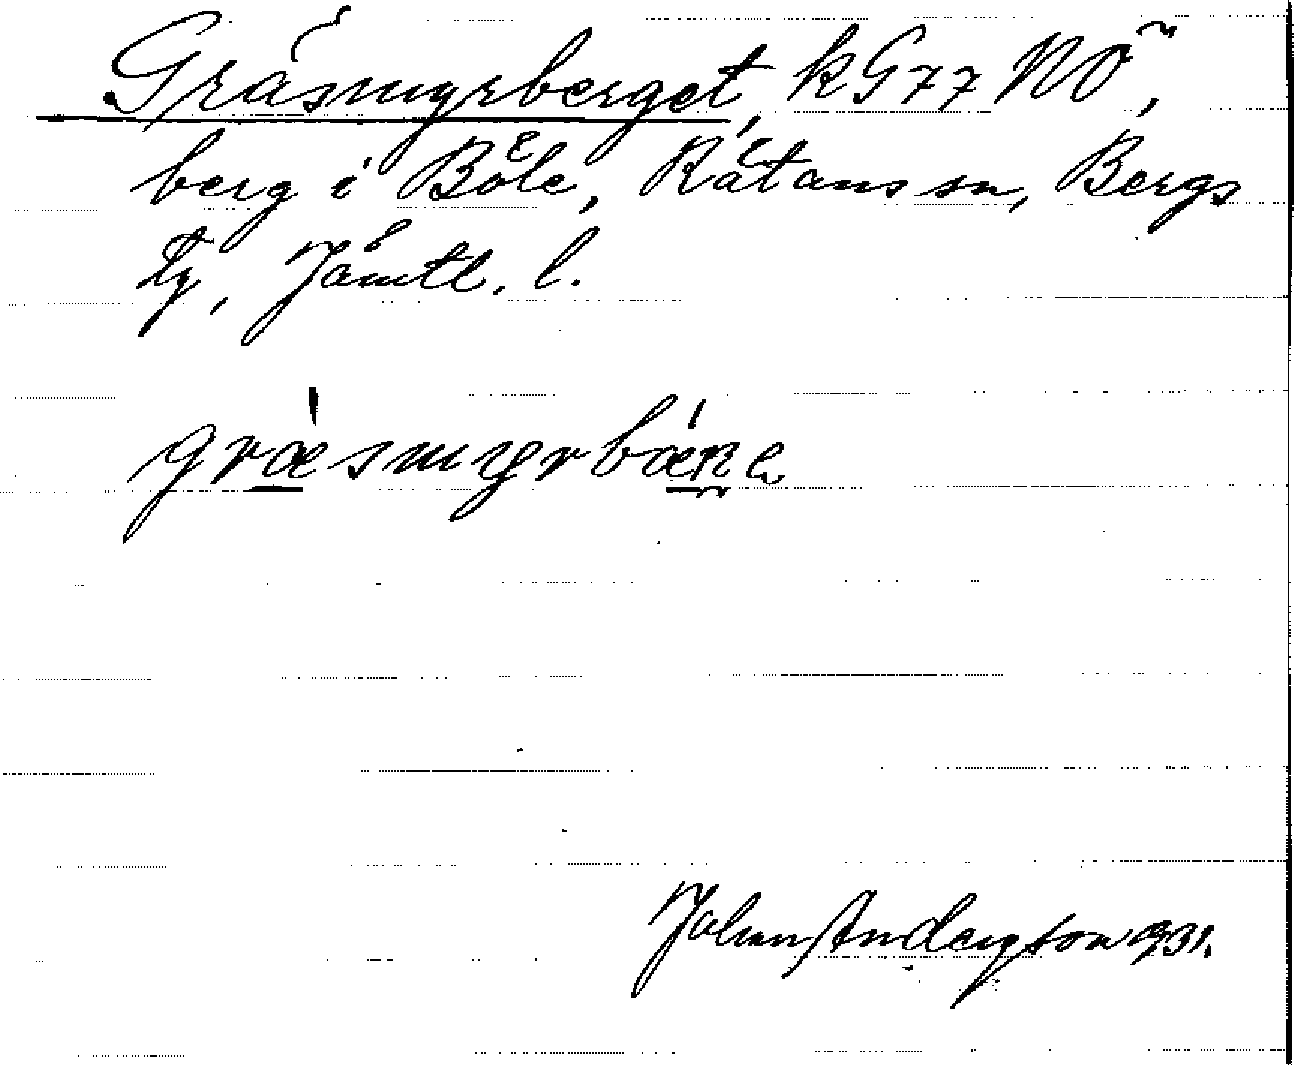 Gräsmyrberget, kG77 NÖ,
berg i Böle, Rätans sn, Bergs
tg, Jämtl. l.
græsmyrbæṇe
Johan Andersson 931.